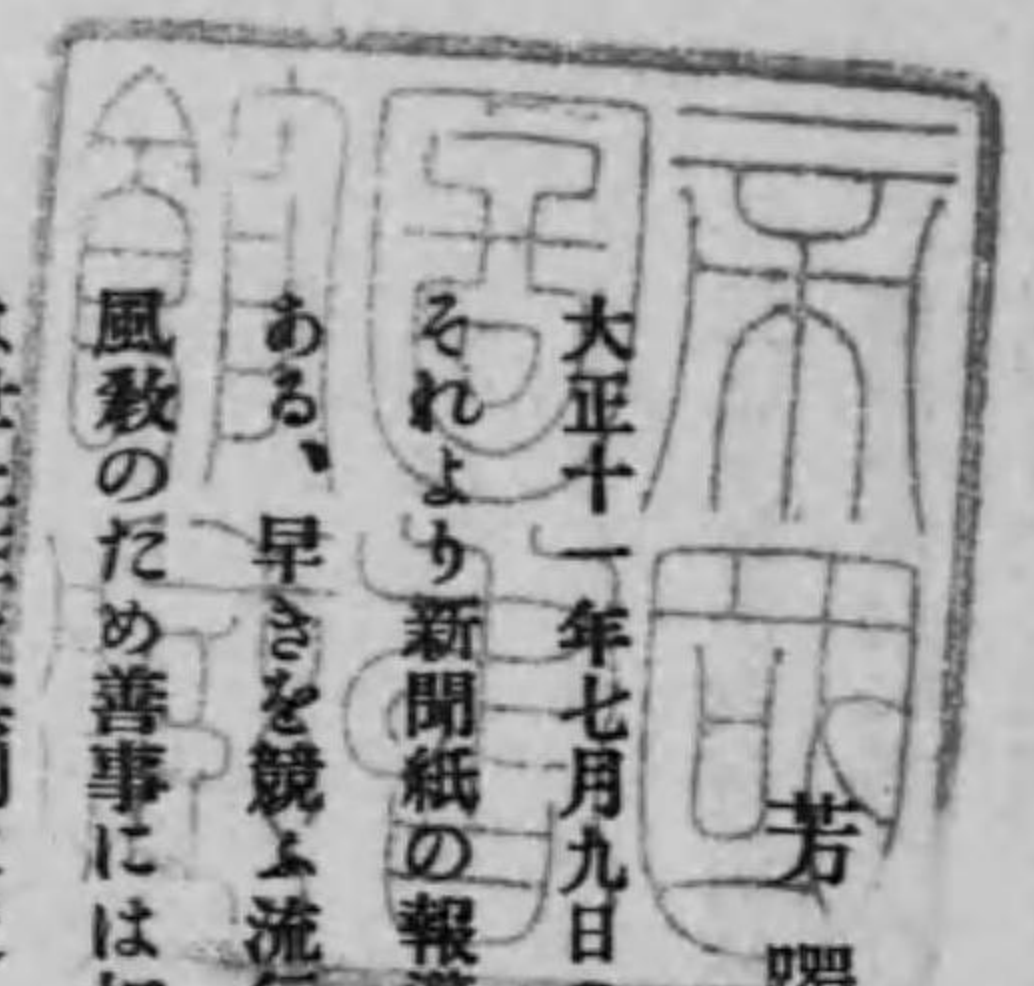 芳
大正十一年七月九日
それより新聞紙の報
ある、早きを競ふ流
風敎のため善事には
帝國圖書館藏